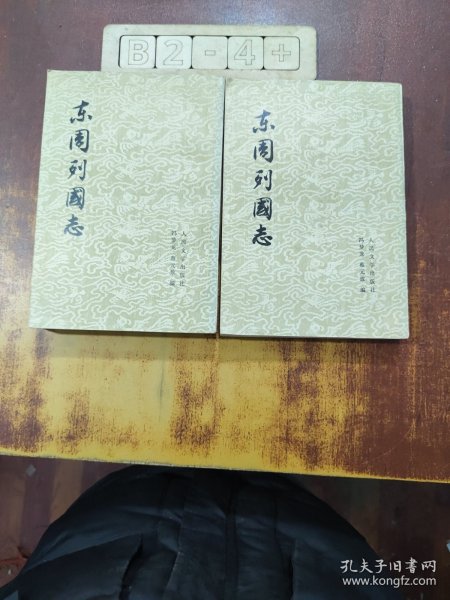 B2-4+
东周列國志
人民文学出版社
冯梦龙 蔡元放 编
东周列國志
人民文学出版社
冯梦龙 蔡元放 编
孔夫子旧书网
www.kongfz.com